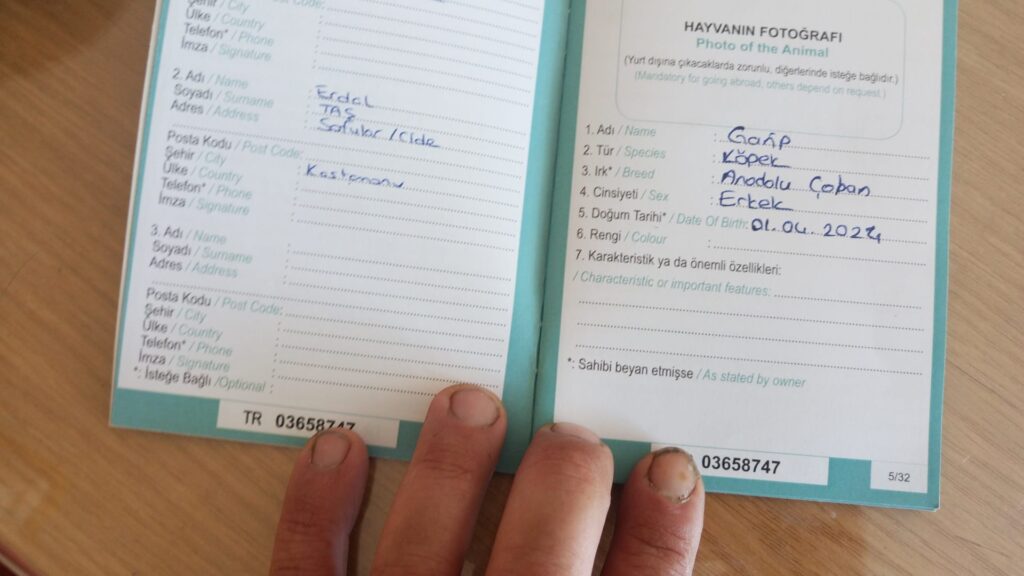 Şehir / City
Ülke / Country
Telefon* / Phone
İmza / Signature
2. Adı / Name
Soyadı / Surname : Erdal
Adres / Address : TAŞ
: Sofular / Cide
Posta Kodu / Post Code:
Şehir / City
Ülke / Country : Kastamonu
Telefon* / Phone
İmza / Signature
3. Adı / Name
Soyadı / Surname
Adres / Address
Posta Kodu / Post Code:
Şehir / City
Ülke / Country
Telefon* / Phone
İmza / Signature
*: İsteğe Bağlı /Optional :
TR 03658747
HAYVANIN FOTOĞRAFI
Photo of the Animal
(Yurt dışına çıkacaklarda zorunlu, diğerlerinde isteğe bağlıdır.)
(Mandatory for going abroad, others depend on request.)
1. Adı / Name :
2. Tür / Species : Köpek
3. Irk* / Breed : Anadolu Çoban
4. Cinsiyeti / Sex : Erkek
5. Doğum Tarihi* / Date Of Birth: 01.04.2024
6. Rengi / Colour :
7. Karakteristik ya da önemli özellikleri:
/ Characteristic or important features:
*: Sahibi beyan etmişse / As stated by owner
03658747
5/32